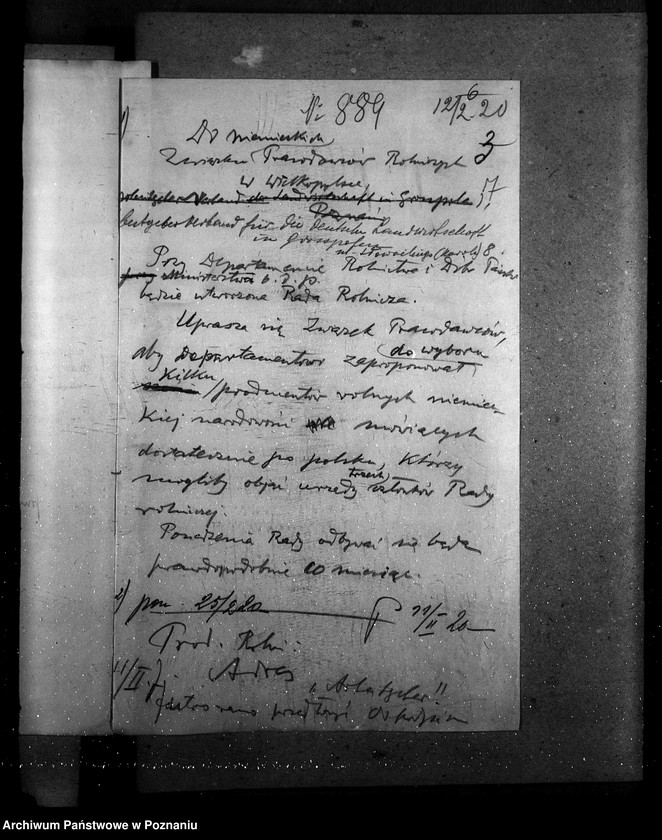 № 889 12/2 6 20
1) 3
Do niemieckich
Związku Pracodawców Rolniczych
w Wielkopolsce
Verband der Landwirtschaft in Grosspolen 17
Poznań
beitgeberverband für die deutsche Landwirtschaft
in Grosspolen
ul. Słowackiego (Karol) 8.
Przy Departamencie Rolnictwa i Dóbr Państw
Ministerstwa b. d. p.
będzie utworzona Rada Rolnicza.
Uprasza się Związek Pracodawców,
aby Departamentowi zaproponował (do wyboru
kilku
producentów rolnych niemiec
kiej narodowości mówiących
dostatecznie po polsku, którzy
mogliby objąć urzędy trzech członków Rady
rolniczej.
Posiedzenia Rady odbywać się będą
prawdopodobnie co miesiąc.
2) pon. 25/2 20 11/II 20
Prod. Roln.
11/II Adres „Arbeitgeber"!!
jutro rano przedłożyć
Archiwum Państwowe w Poznaniu